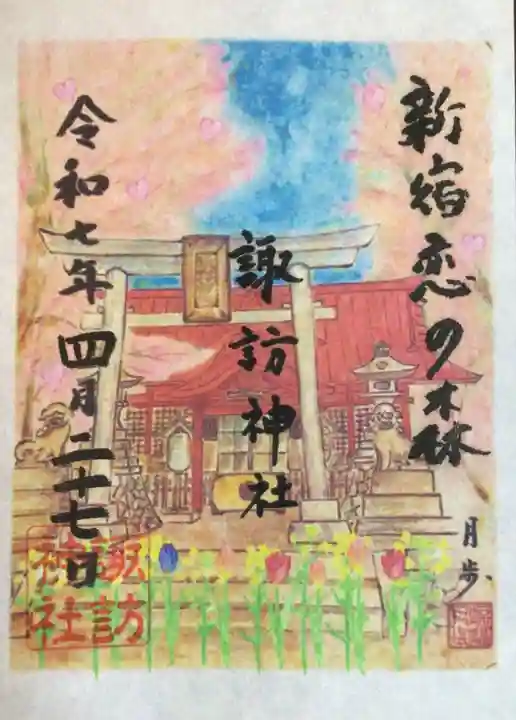 新宿恋の森
月歩
諏訪神社
令和七年四月二十七日
諏訪
神社